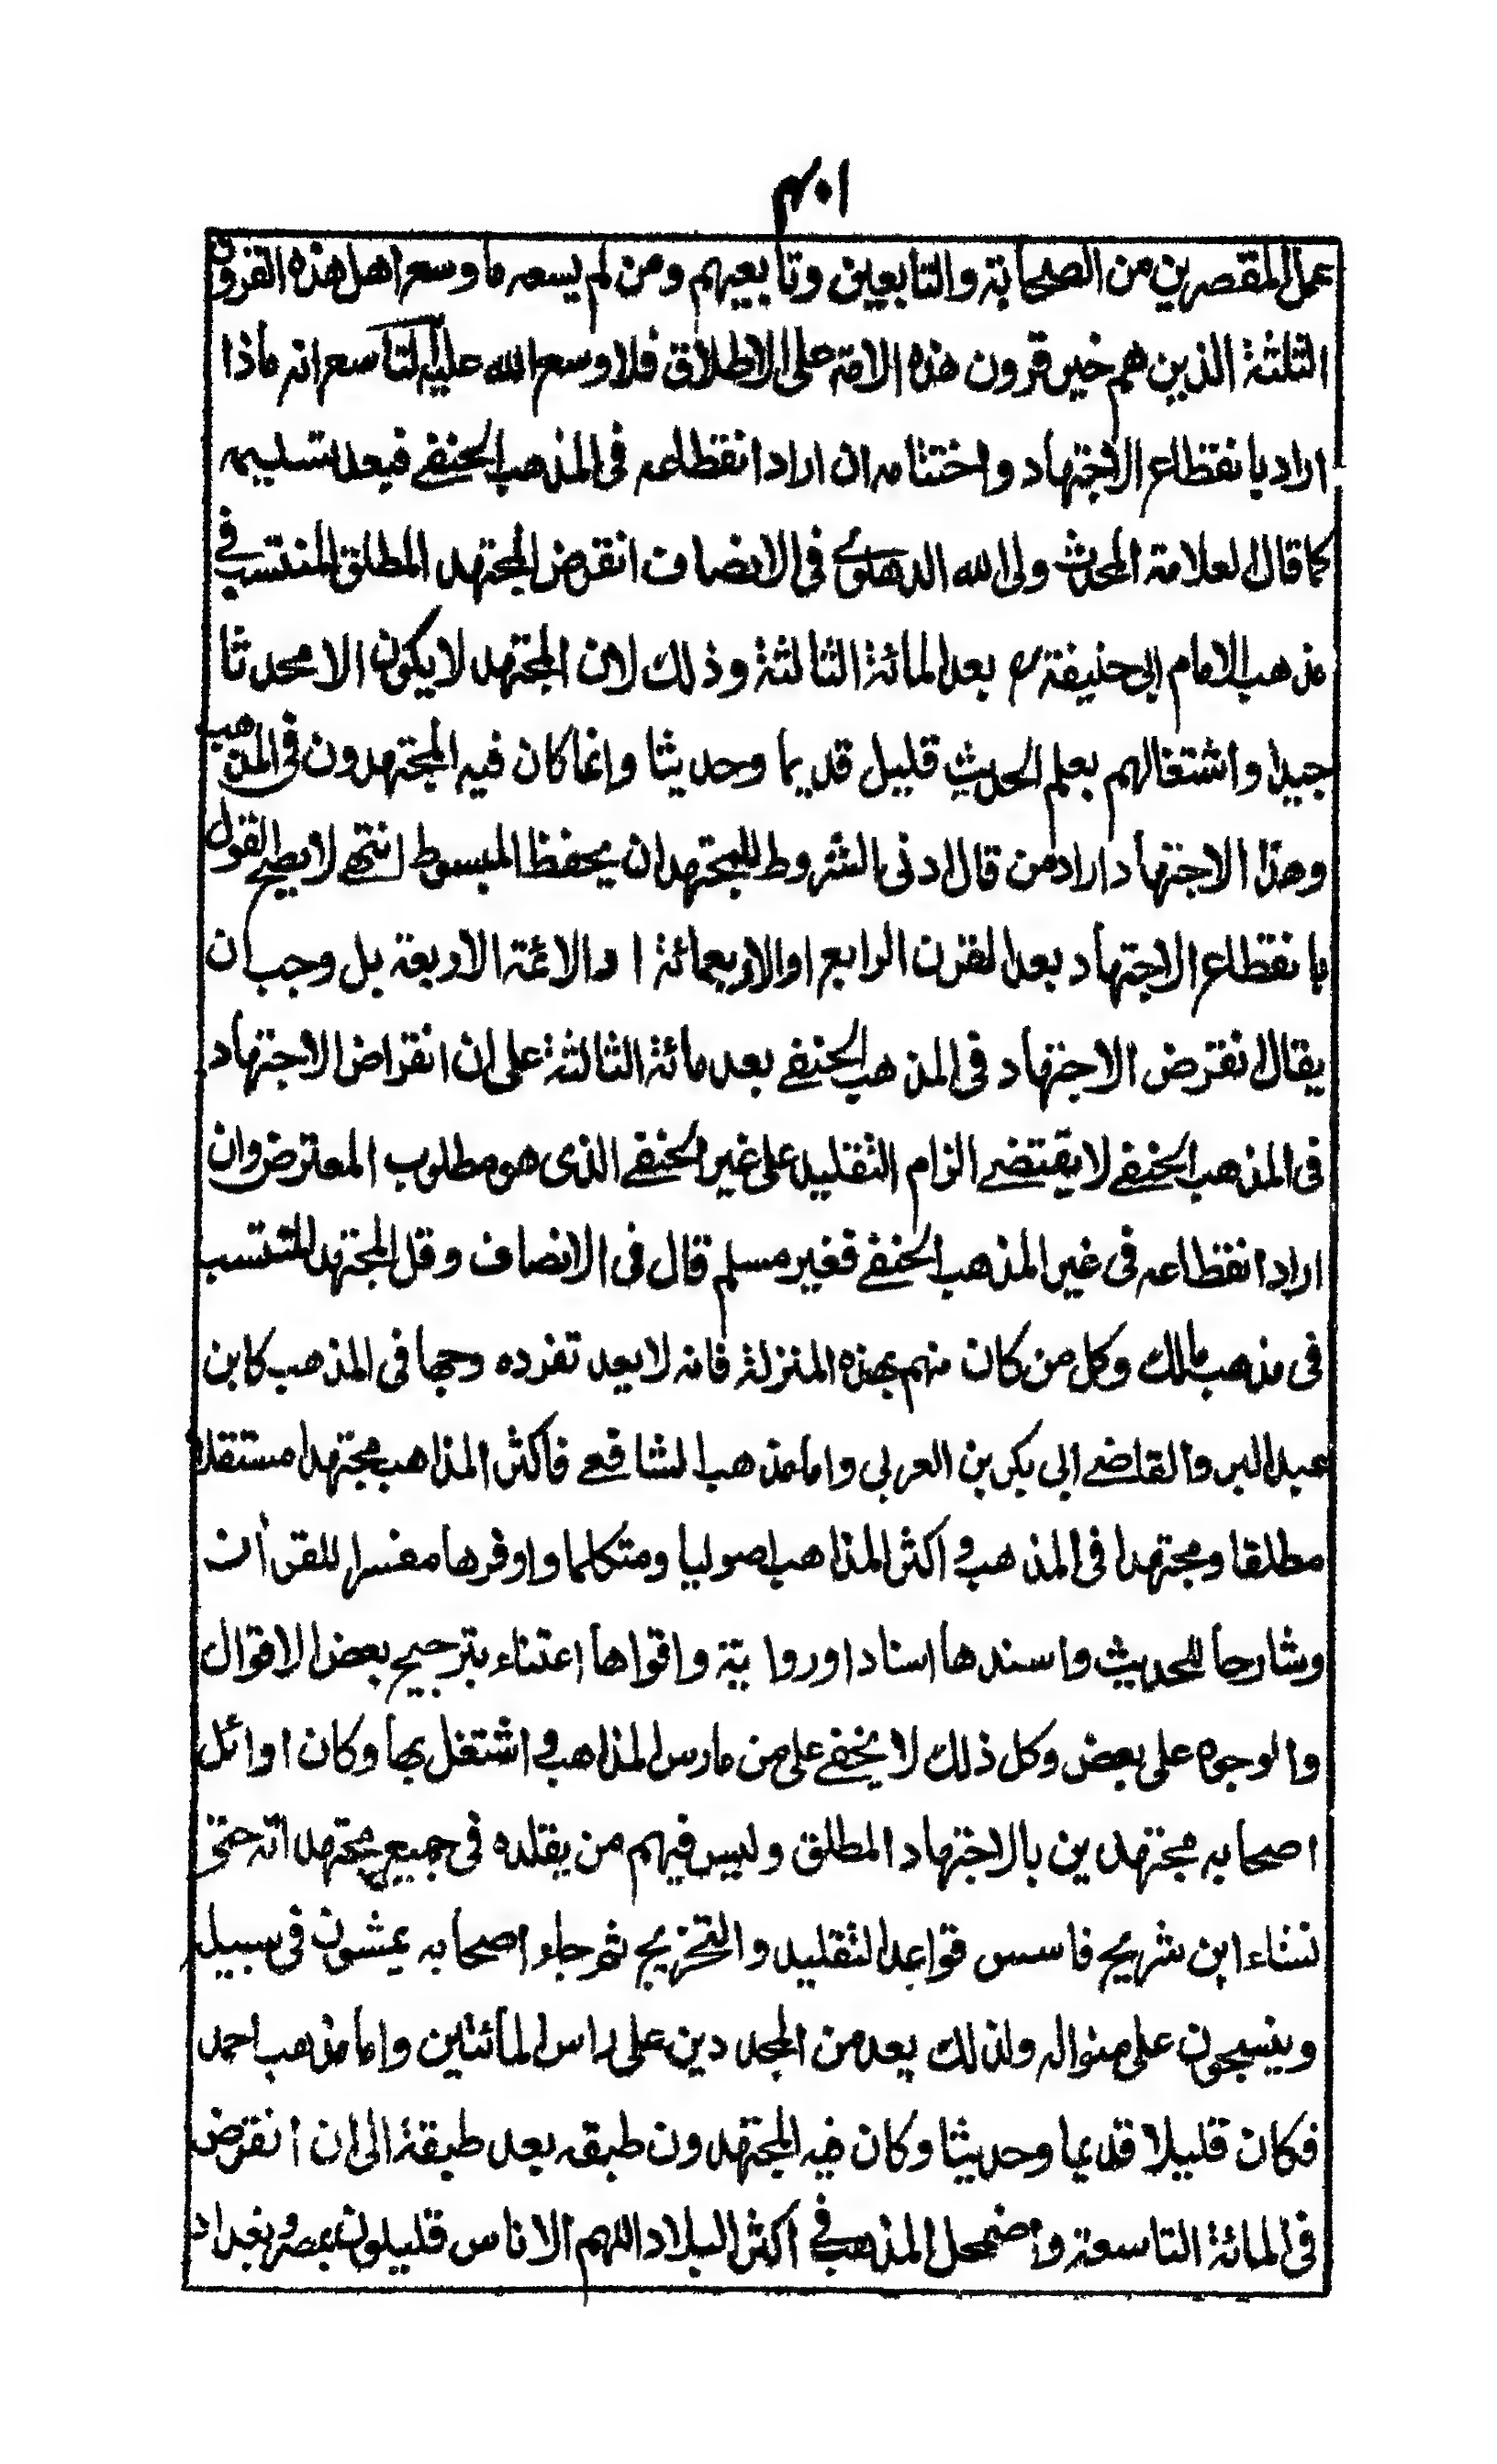 ۱۰۴
عمل المقصرين من الصحابة والتابعين وتابعيهم ومن لم يسعه ما وسع اهل هذه القرون
الثلثة الذين هم خير قرون هذه الامة على الاطلاق فلا وسع الله عليه لتاسع انه ماذا
اراد بانقطاع الاجتهاد واختتامه ان اراد انقطاعه فى المذهب الحنفے فبعد تسليمه
كما قال العلامة المحدث ولى الله الدهلوے فى الانصاف انقرض المجتهد المطلق المنتسب فے
مذهب الامام ابى حنيفة رح بعد المائة الثالثة وذلك لان المجتهد لا يكون الا محدثا
جيدا واشتغالهم بعلم الحديث قليل قديما وحديثا وانما كان فيه المجتهدون فى المذهب
وهذا الاجتهاد اراد من قال ادنى الشروط للمجتهد ان يحفظ المبسوط انتهے لا يصح القول
بانقطاع الاجتهاد بعد القرن الرابع او الاربعمائة او الائمة الاربعة بل وجب ان
يقال انقرض الاجتهاد فى المذهب الحنفے بعد مائة الثالثة على ان انقراض الاجتهاد
فى المذهب الحنفے لا يقتضے الزام التقليد على غير الحنفے الذى هو مطلوب المعترض وان
اراد انقطاعه فى غير المذهب الحنفے فغير مسلم قال فى الانصاف وقل المجتهد المنتسب
فى مذهب مالك وكل من كان منهم بهذه المنزلة فانه لا يعد تفرده وجها فى المذهب كابن
عبد البر والقاضے ابى بكر بن العربى واما مذهب الشافعے فاكثر المذاهب مجتهدا مستقلا
مطلقا ومجتهدا فى المذهب و اكثر المذاهب اصوليا ومتكلما واوفرها مفسرا للقرآن
وشارحا للحديث واسندها اسنادا ورواية واقواها اعتناء بترجيح بعض الاقوال
والوجوه على بعض وكل ذلك لا يخفے على من مارس المذاهب و اشتغل بها وكان اوائل
اصحابه مجتهدين بالاجتهاد المطلق وليس فيهم من يقلده فى جميع مجتهداته حتى
نشاء ابن شريح فاسس قواعد التقليد والتخريج ثم جاء اصحابه يمشون فى سبيله
وينسجون على منواله ولذلك يعد من المجددين على راس المأتين واما مذهب احمد
فكان قليلا قديما وحديثا وكان فيه المجتهدون طبقه بعد طبقة الى ان انقرض
فى المائة التاسعة واضمحل المذهب فے اكثر البلاد اللهم الا ناس قليلون بمصر وبغداد